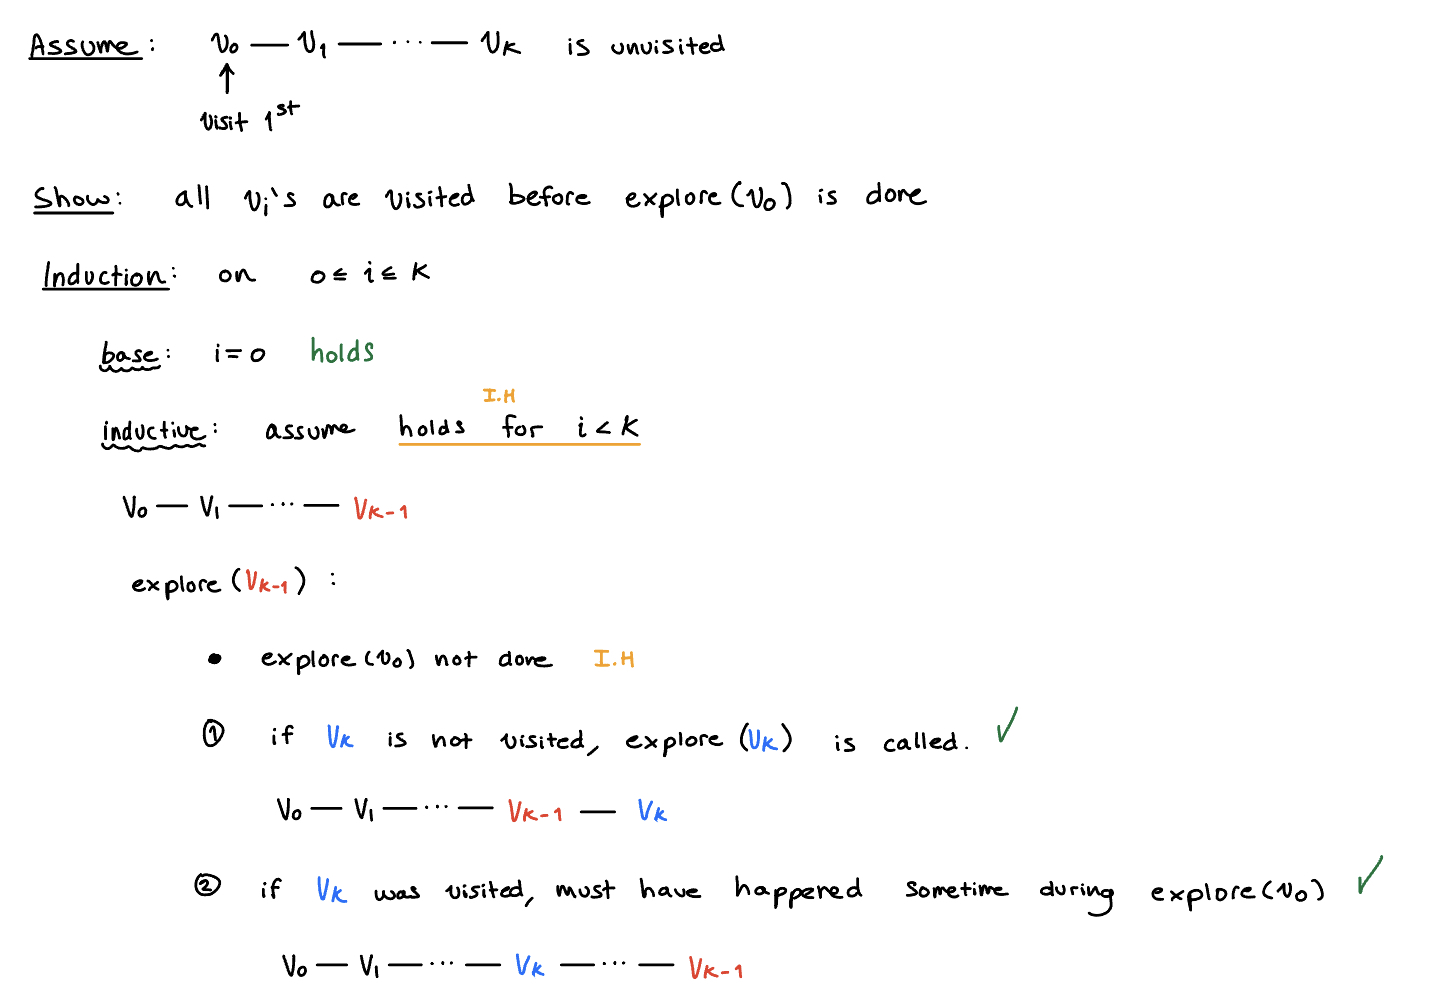 Assume: v₀ — v₁ — ··· — vₖ is unvisited
↑
visit 1ˢᵗ
Show: all vᵢ's are visited before explore(v₀) is done
Induction: on 0 ≤ i ≤ k
base: i = 0 holds
I.H
inductive: assume holds for i < k
v₀ — v₁ — ··· — vₖ₋₁
explore(vₖ₋₁) :
• explore(v₀) not done I.H
① if vₖ is not visited, explore(vₖ) is called. ✓
v₀ — v₁ — ··· — vₖ₋₁ — vₖ
② if vₖ was visited, must have happened sometime during explore(v₀) ✓
v₀ — v₁ — ··· — vₖ — ··· — vₖ₋₁